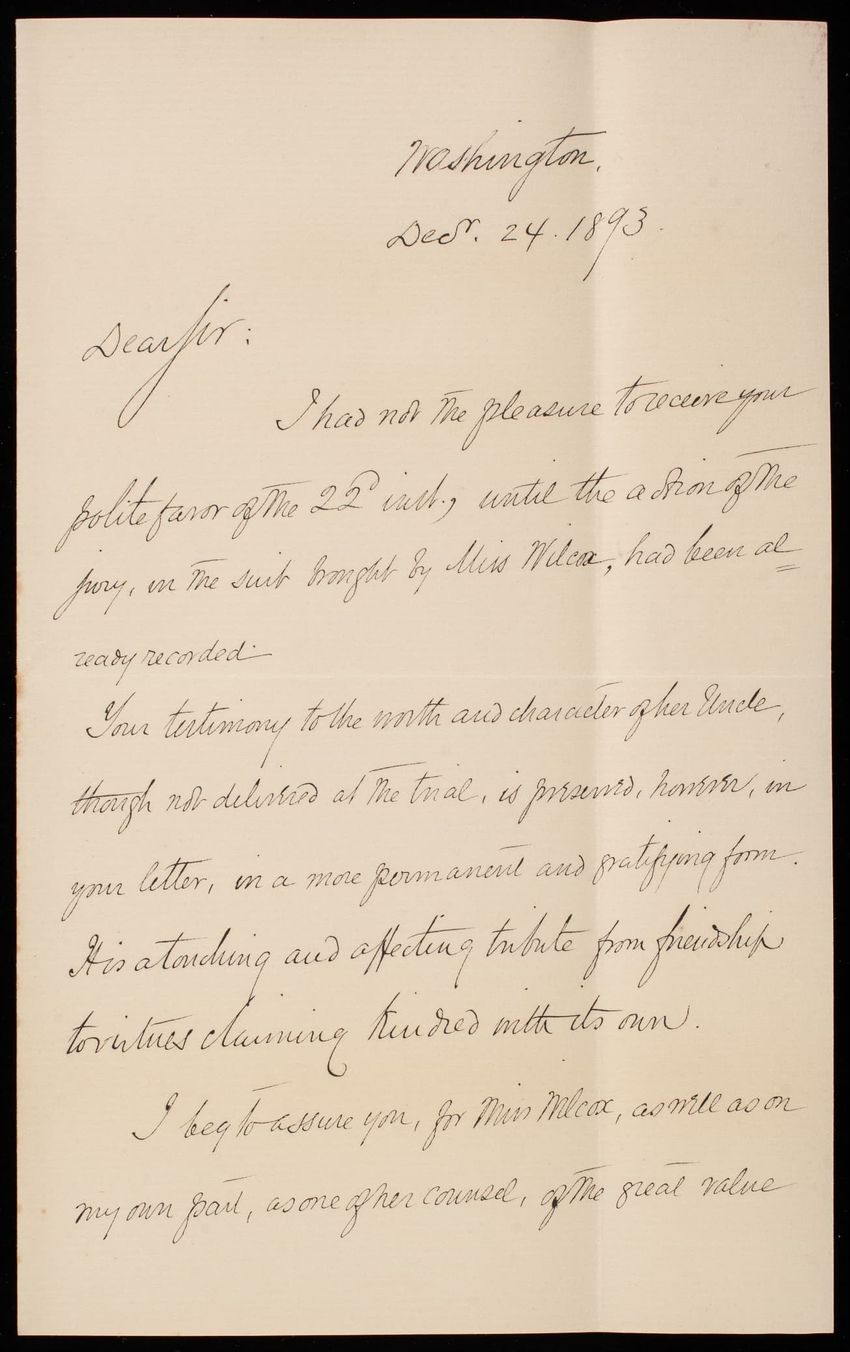 Washington,
Decr. 24. 1893.
Dear Sir:
I had not the pleasure to receive your
polite favor of the 22d inst., until the action of the
jury, in the suit brought by Miss Wilcox, had been al=
ready recorded.
Your testimony to the worth and character of her Uncle,
though not delivered at the trial, is preserved, however, in
your letter, in a more permanent and gratifying form.
It is a touching and affecting tribute from friendship
to virtues claiming kindred with its own.
I beg to assure you, for Miss Wilcox, as well as on
my own part, as one of her counsel, of the great value